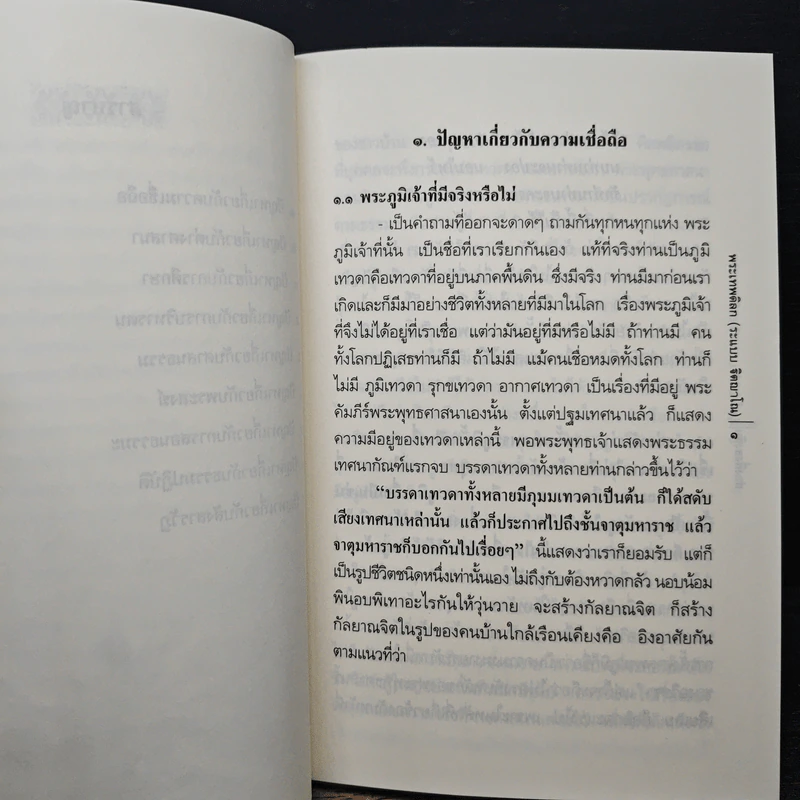 ๑. ปัญหาเกี่ยวกับความเชื่อถือ
๑.๑ พระภูมิเจ้าที่มีจริงหรือไม่
- เป็นคำถามที่ออกจะดาดๆ ถามกันทุกหนทุกแห่ง พระ
ภูมิเจ้าที่นั้น เป็นชื่อที่เราเรียกกันเอง แท้ที่จริงท่านเป็นภูมิ
เทวดาคือเทวดาที่อยู่บนภาคพื้นดิน ซึ่งมีจริง ท่านมีมาก่อนเรา
เกิดและก็มีมาอย่างชีวิตทั้งหลายที่มีมาในโลก เรื่องพระภูมิเจ้า
ที่จึงไม่ได้อยู่ที่เราเชื่อ แต่ว่ามันอยู่ที่มีหรือไม่มี ถ้าท่านมี คน
ทั้งโลกปฏิเสธท่านก็มี ถ้าไม่มี แม้คนเชื่อหมดทั้งโลก ท่านก็
ไม่มี ภูมิเทวดา รุกขเทวดา อากาศเทวดา เป็นเรื่องที่มีอยู่ พระ
คัมภีร์พระพุทธศาสนาเองนั้น ตั้งแต่ปฐมเทศนาแล้ว ก็แสดง
ความมีอยู่ของเทวดาเหล่านี้ พอพระพุทธเจ้าแสดงพระธรรม
เทศนากัณฑ์แรกจบ บรรดาเทวดาทั้งหลายท่านกล่าวขึ้นไว้ว่า
“บรรดาเทวดาทั้งหลายมีภุมมเทวดาเป็นต้น ก็ได้สดับ
เสียงเทศนาเหล่านั้น แล้วก็ประกาศไปถึงชั้นจาตุมหาราช แล้ว
จาตุมหาราชก็บอกกันไปเรื่อยๆ” นี้แสดงว่าเราก็ยอมรับ แต่ก็
เป็นรูปชีวิตชนิดหนึ่งเท่านั้นเอง ไม่ถึงกับต้องหวาดกลัว นอบน้อม
พินอบพิเทาอะไรกันให้วุ่นวาย จะสร้างกัลยาณจิต ก็สร้าง
กัลยาณจิตในรูปของคนบ้านใกล้เรือนเคียงคือ อิงอาศัยกัน
ตามแนวที่ว่า
พระเทพดิลก (ระแบบ ฐิตญาโณ) ๑